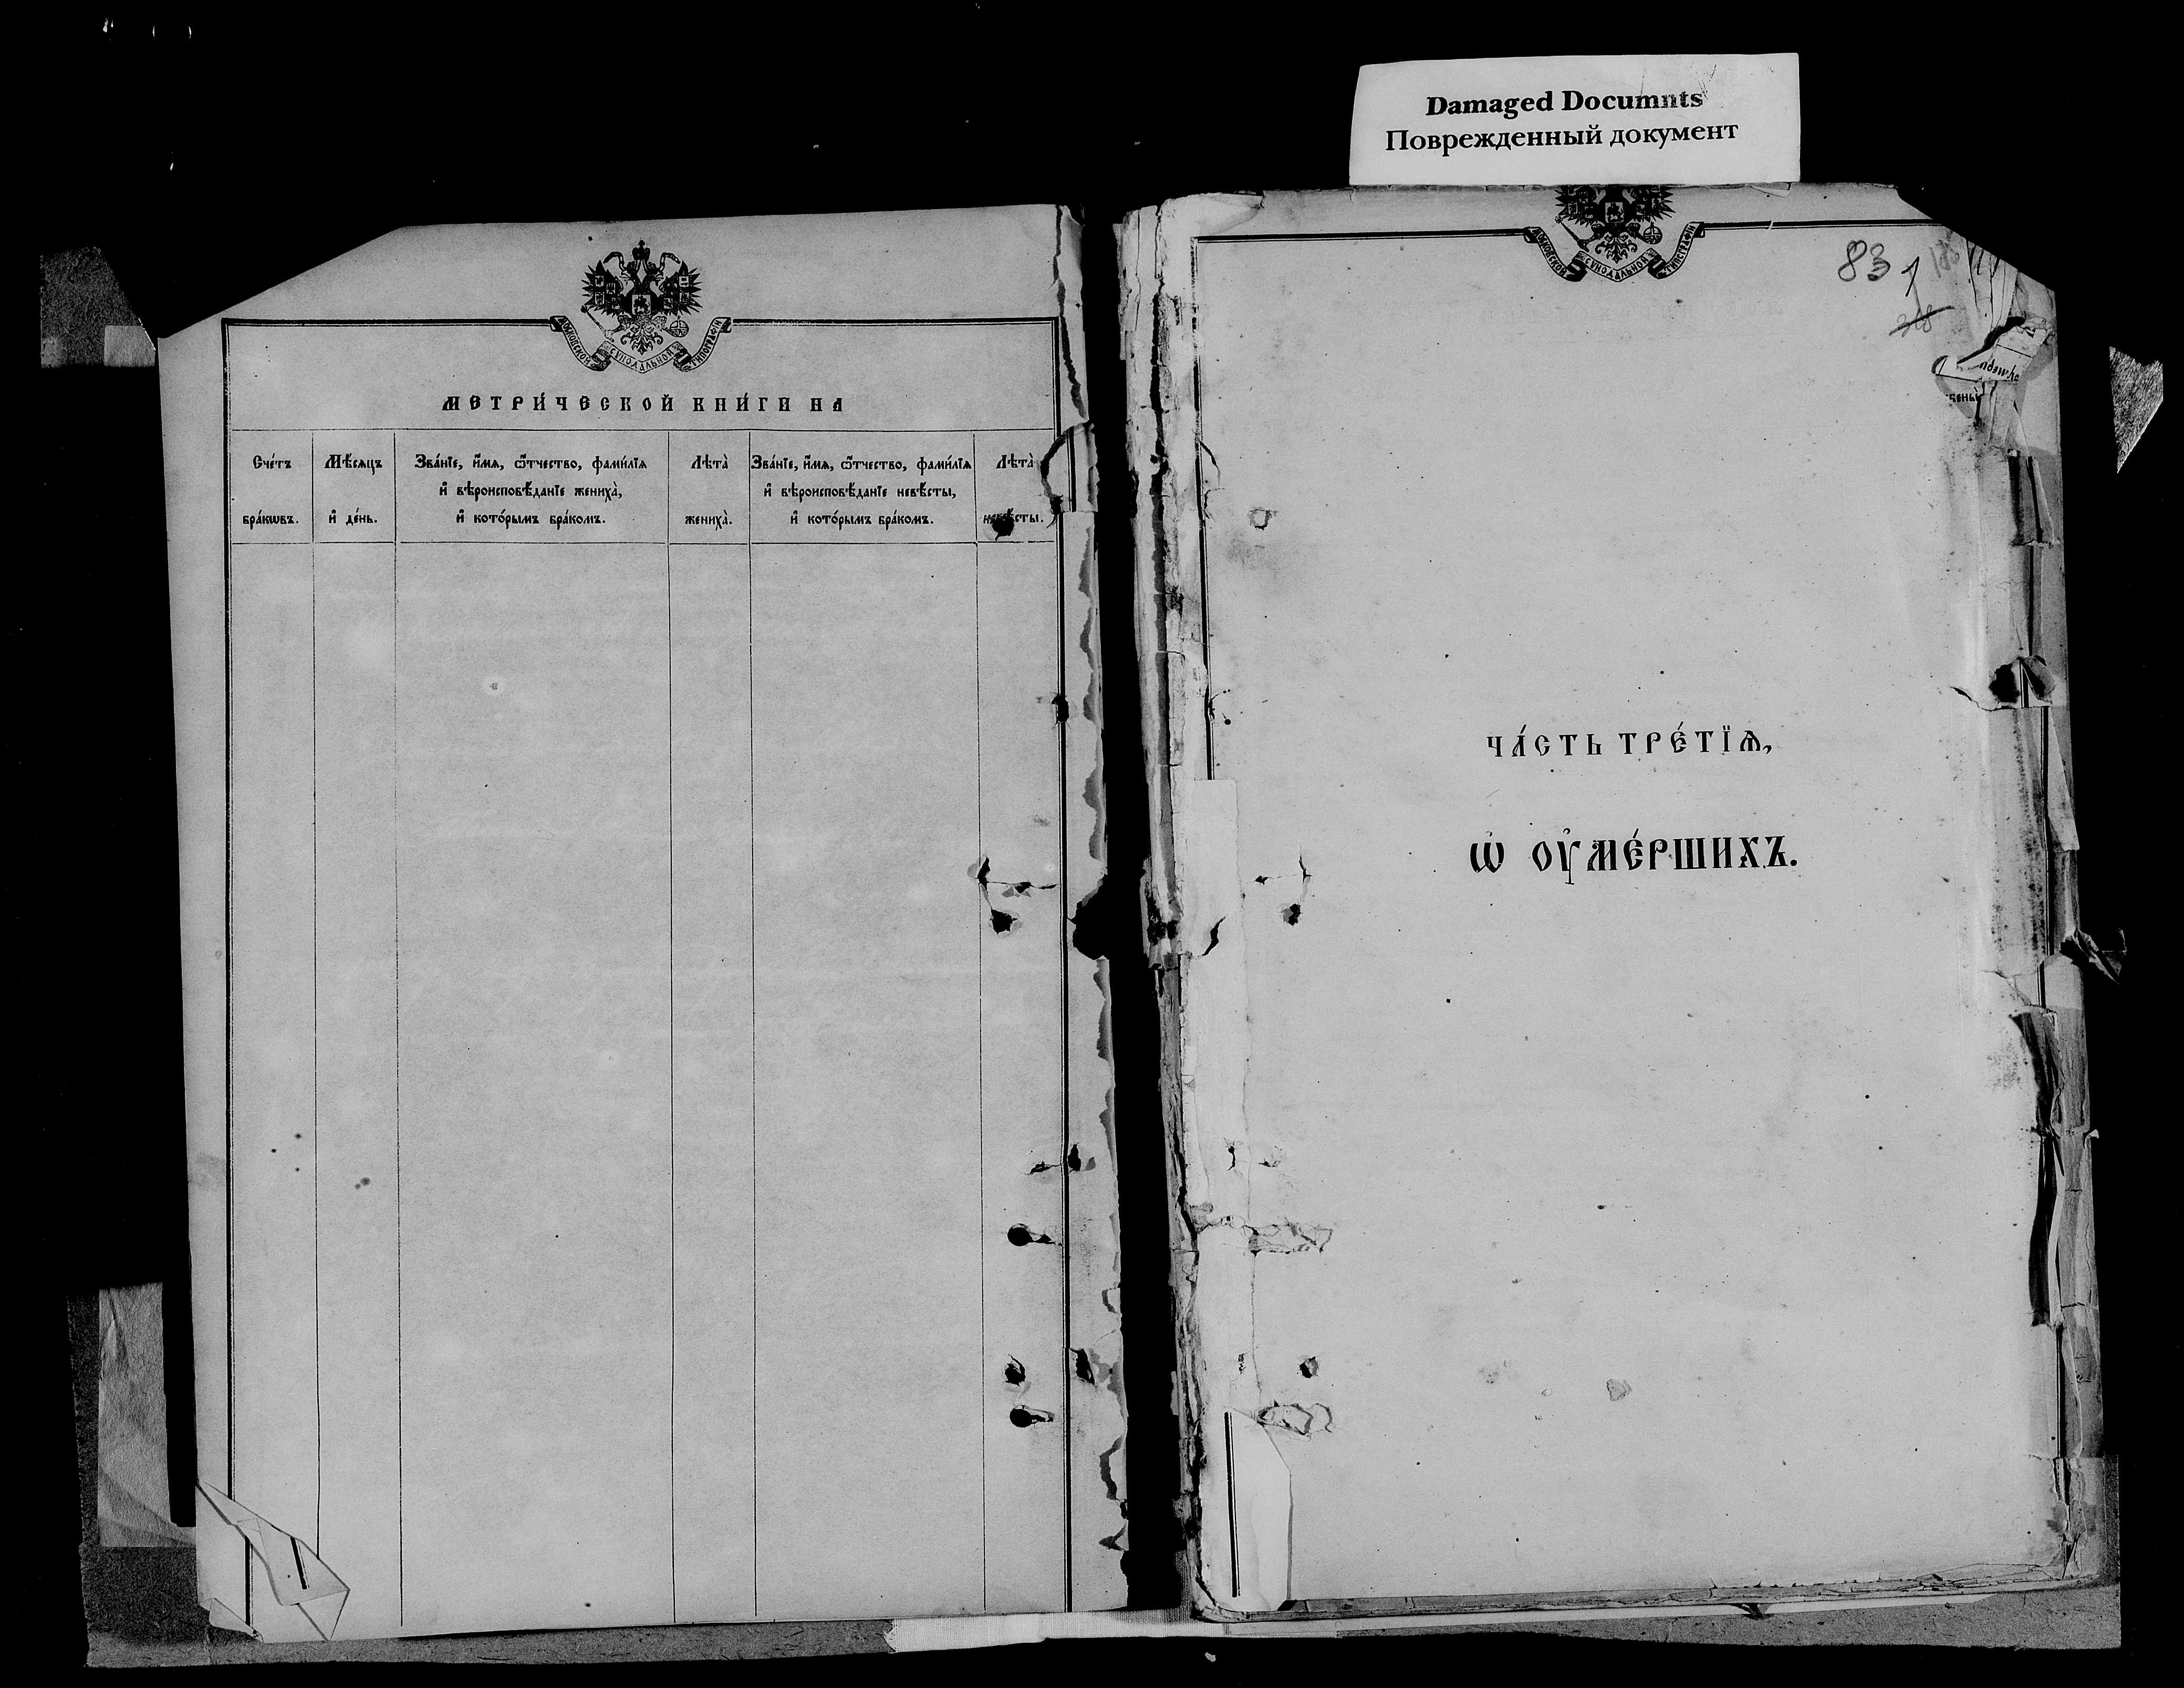 Damaged Documnts
Поврежденный документ
МОСКОВСКОЙ СУНОДАЛЬНОЙ ТИПОГРАФІИ
МЕТРИ́ЧЕСКОЙ КНИ́ГИ НА
Сче́тъ бра́кѡвъ.
Мѣ́сяцъ и҆ де́нь.
Зва́нїе, и҆́мѧ, ѻ҆́тчество, фами́лїѧ
и҆ вѣроисповѣ́данїе жениха̀,
и҆ кото́рымъ бра́комъ.
Лѣта̀ жениха̀.
Зва́нїе, и҆́мѧ, ѻ҆́тчество, фами́лїѧ
и҆ вѣроисповѣ́данїе невѣ́сты,
и҆ кото́рымъ бра́комъ.
Лѣта̀ невѣ́сты.
МОСКОВСКОЙ СУНОДАЛЬНОЙ ТИПОГРАФІИ
83
318
ЧА́СТЬ ТРЕ́ТЇѦ,
Ѡ҆ ОУ҆МЕ́РШИХЪ.